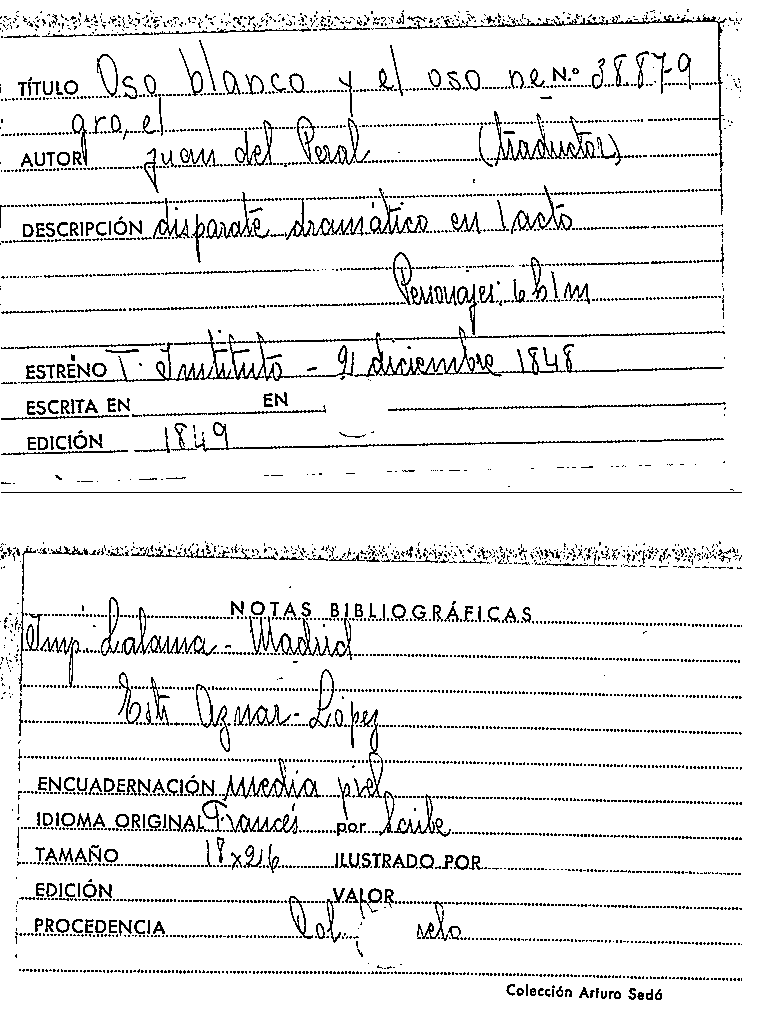 TÍTULO Oso blanco y el oso ne N.º 38879
gro, el
AUTOR Juan del Peral (traductor)
DESCRIPCIÓN disparate dramático en 1 acto
Personajes: 6 h 1 m
ESTRENO T. Instituto - 21 diciembre 1848
ESCRITA EN EN
EDICIÓN 1849
NOTAS BIBLIOGRÁFICAS
Imp. Lalama - Madrid
Aznar - López
ENCUADERNACIÓN media piel
IDIOMA ORIGINAL Francés por Scribe
TAMAÑO 18x26 ILUSTRADO POR
EDICIÓN VALOR
PROCEDENCIA
Colección Arturo Sedó